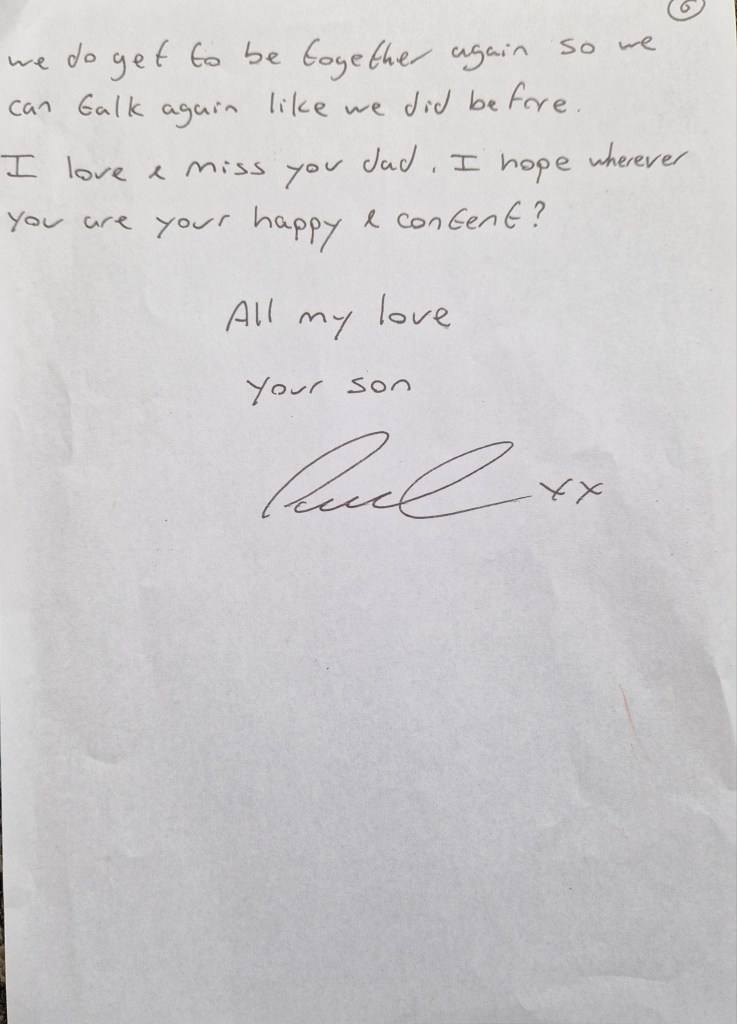 6
we do get to be together again so we
can talk again like we did before.
I love & miss you dad. I hope wherever
you are your happy & content?
All my love
your son
Paul xx